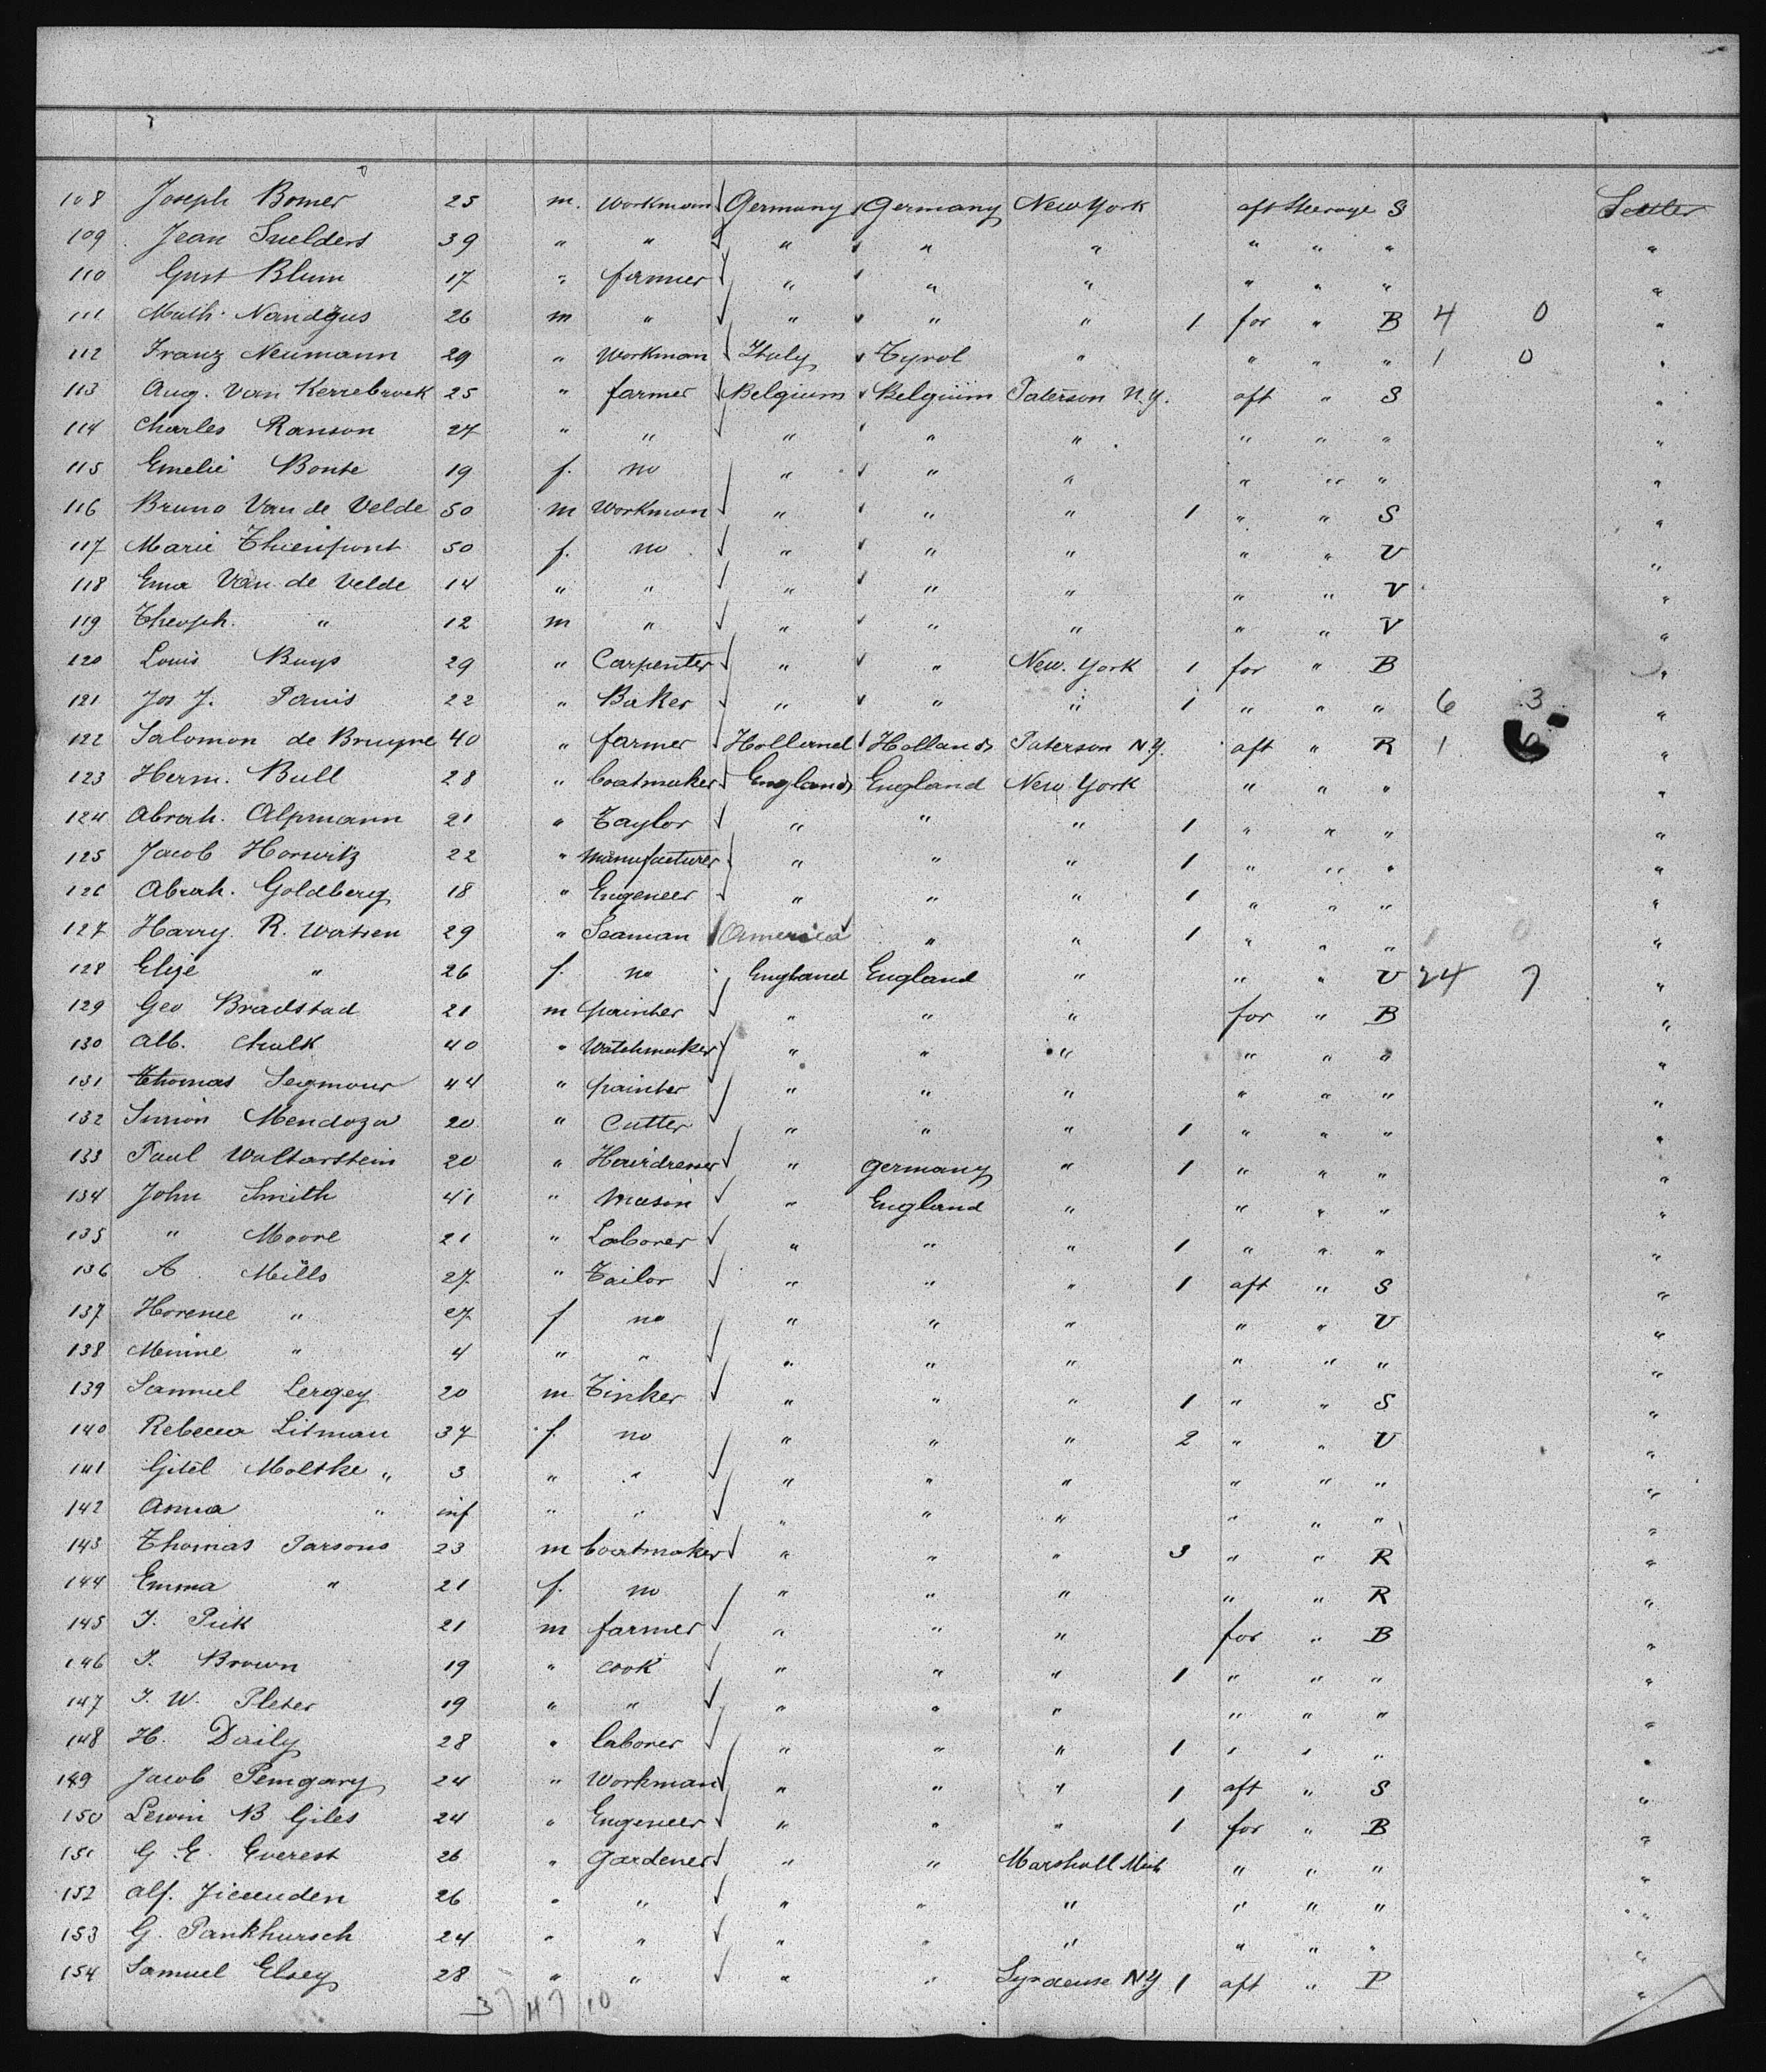 108 Joseph Bomer 25 m. Workman Germany Germany New York aft Steerage S Settler
109 Jean Suelders 39 " " " " " " " " "
110 Gust Blum 17 " farmer " " " " " " "
111 Math. Nandgus 26 m " " " " 1 for " B 4 0 "
112 Franz Neumann 29 " Workman Italy Tyrol " " " " 1 0 "
113 Aug. Van Kerrebroek 25 " farmer Belgium Belgium Paterson N.Y. aft " S "
114 Charles Ranson 27 " " " " " " " " "
115 Emelie Bonte 19 f. no " " " " " " "
116 Bruno Van de Velde 50 m Workman " " " 1 " " S "
117 Marie Thienpont 50 f. no " " " " " V "
118 Ema Van de Velde 14 " " " " " " " V "
119 Theoph. " 12 m " " " " " " V "
120 Louis Buys 29 " Carpenter " " New York 1 for " B "
121 Jos J. Panis 22 " Baker " " " 1 " " " 6 3 "
122 Salomon de Bruyne 40 " farmer Holland Holland Paterson N.Y. aft " R 1 "
123 Herm. Bull 28 " bootmaker England England New York " " " "
124 Abrah. Alpmann 21 " Taylor " " " 1 " " " "
125 Jacob Horwitz 22 " Manufacturer " " " 1 " " " "
126 Abrah. Goldberg 18 " Engeneer " " " 1 " " " "
127 Harry R. Watsen 29 " Seaman America " " 1 " " " 1 0 "
128 Elise " 26 f. no England England " " " V 24 7 "
129 Geo Bradstad 21 m painter " " " for " B "
130 Alb. Chalk 40 " Watchmaker " " " " " " "
131 Thomas Seymour 44 " painter " " " " " " "
132 Simon Mendoza 20 " Cutter " " " 1 " " " "
133 Paul Waltarstein 20 " Hairdresser " Germany " 1 " " " "
134 John Smith 41 " Mason " England " " " " "
135 " Moore 21 " Laborer " " " 1 " " " "
136 A. Mills 27 " Tailor " " " 1 aft " S "
137 Florence " 27 f no " " " " " V "
138 Minnie " 4 " " " " " " " " "
139 Samuel Lergey 20 m Tinker " " " 1 " " S "
140 Rebecca Litman 37 f. no " " " 2 " " V "
141 Gitel Moltke " 3 " " " " " " " " "
142 Anna " inf " " " " " " " " "
143 Thomas Parsons 23 m bootmaker " " " 3 " " R "
144 Emma " 21 f. no " " " " " R "
145 J. Pick 21 m farmer " " " for " B "
146 J. Brown 19 " cook " " " 1 " " " "
147 J. W. Pleter 19 " " " " " " " " "
148 H. Daily 28 " laborer " " " 1 " " " "
149 Jacob Pemgary 24 " Workman " " " 1 aft " S "
150 Lewin B Giles 24 " Engeneer " " " 1 for " B "
151 G. E. Everest 26 " Gardener " " Marshall Mich " " " "
152 Alf. 26 " " " " " " " " "
153 G. Pankhursch 24 " " " " " " " " "
154 Samuel Elsey 28 " " " " Syracuse N.Y 1 aft " P "
37 47 10